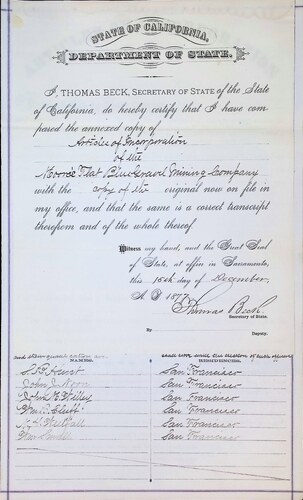 STATE OF CALIFORNIA.
DEPARTMENT OF STATE.
I, THOMAS BECK, SECRETARY OF STATE of the State
of California, do hereby certify that I have com
pared the annexed copy of
Articles of Incorporation
of the
Moore's Flat Blue Gravel Mining Company
with the copy of the original now on file in
my office, and that the same is a correct transcript
therefrom and of the whole thereof.
Witness my hand, and the Great Seal
of State, at office in Sacramento,
this 16th day of December,
A D 187
Thomas Beck
Secretary of State.
By
Deputy.
NAMES. RESIDENCES.
Hunt San Francisco
John San Francisco
John San Francisco
Cluff San Francisco
San Francisco
San Francisco